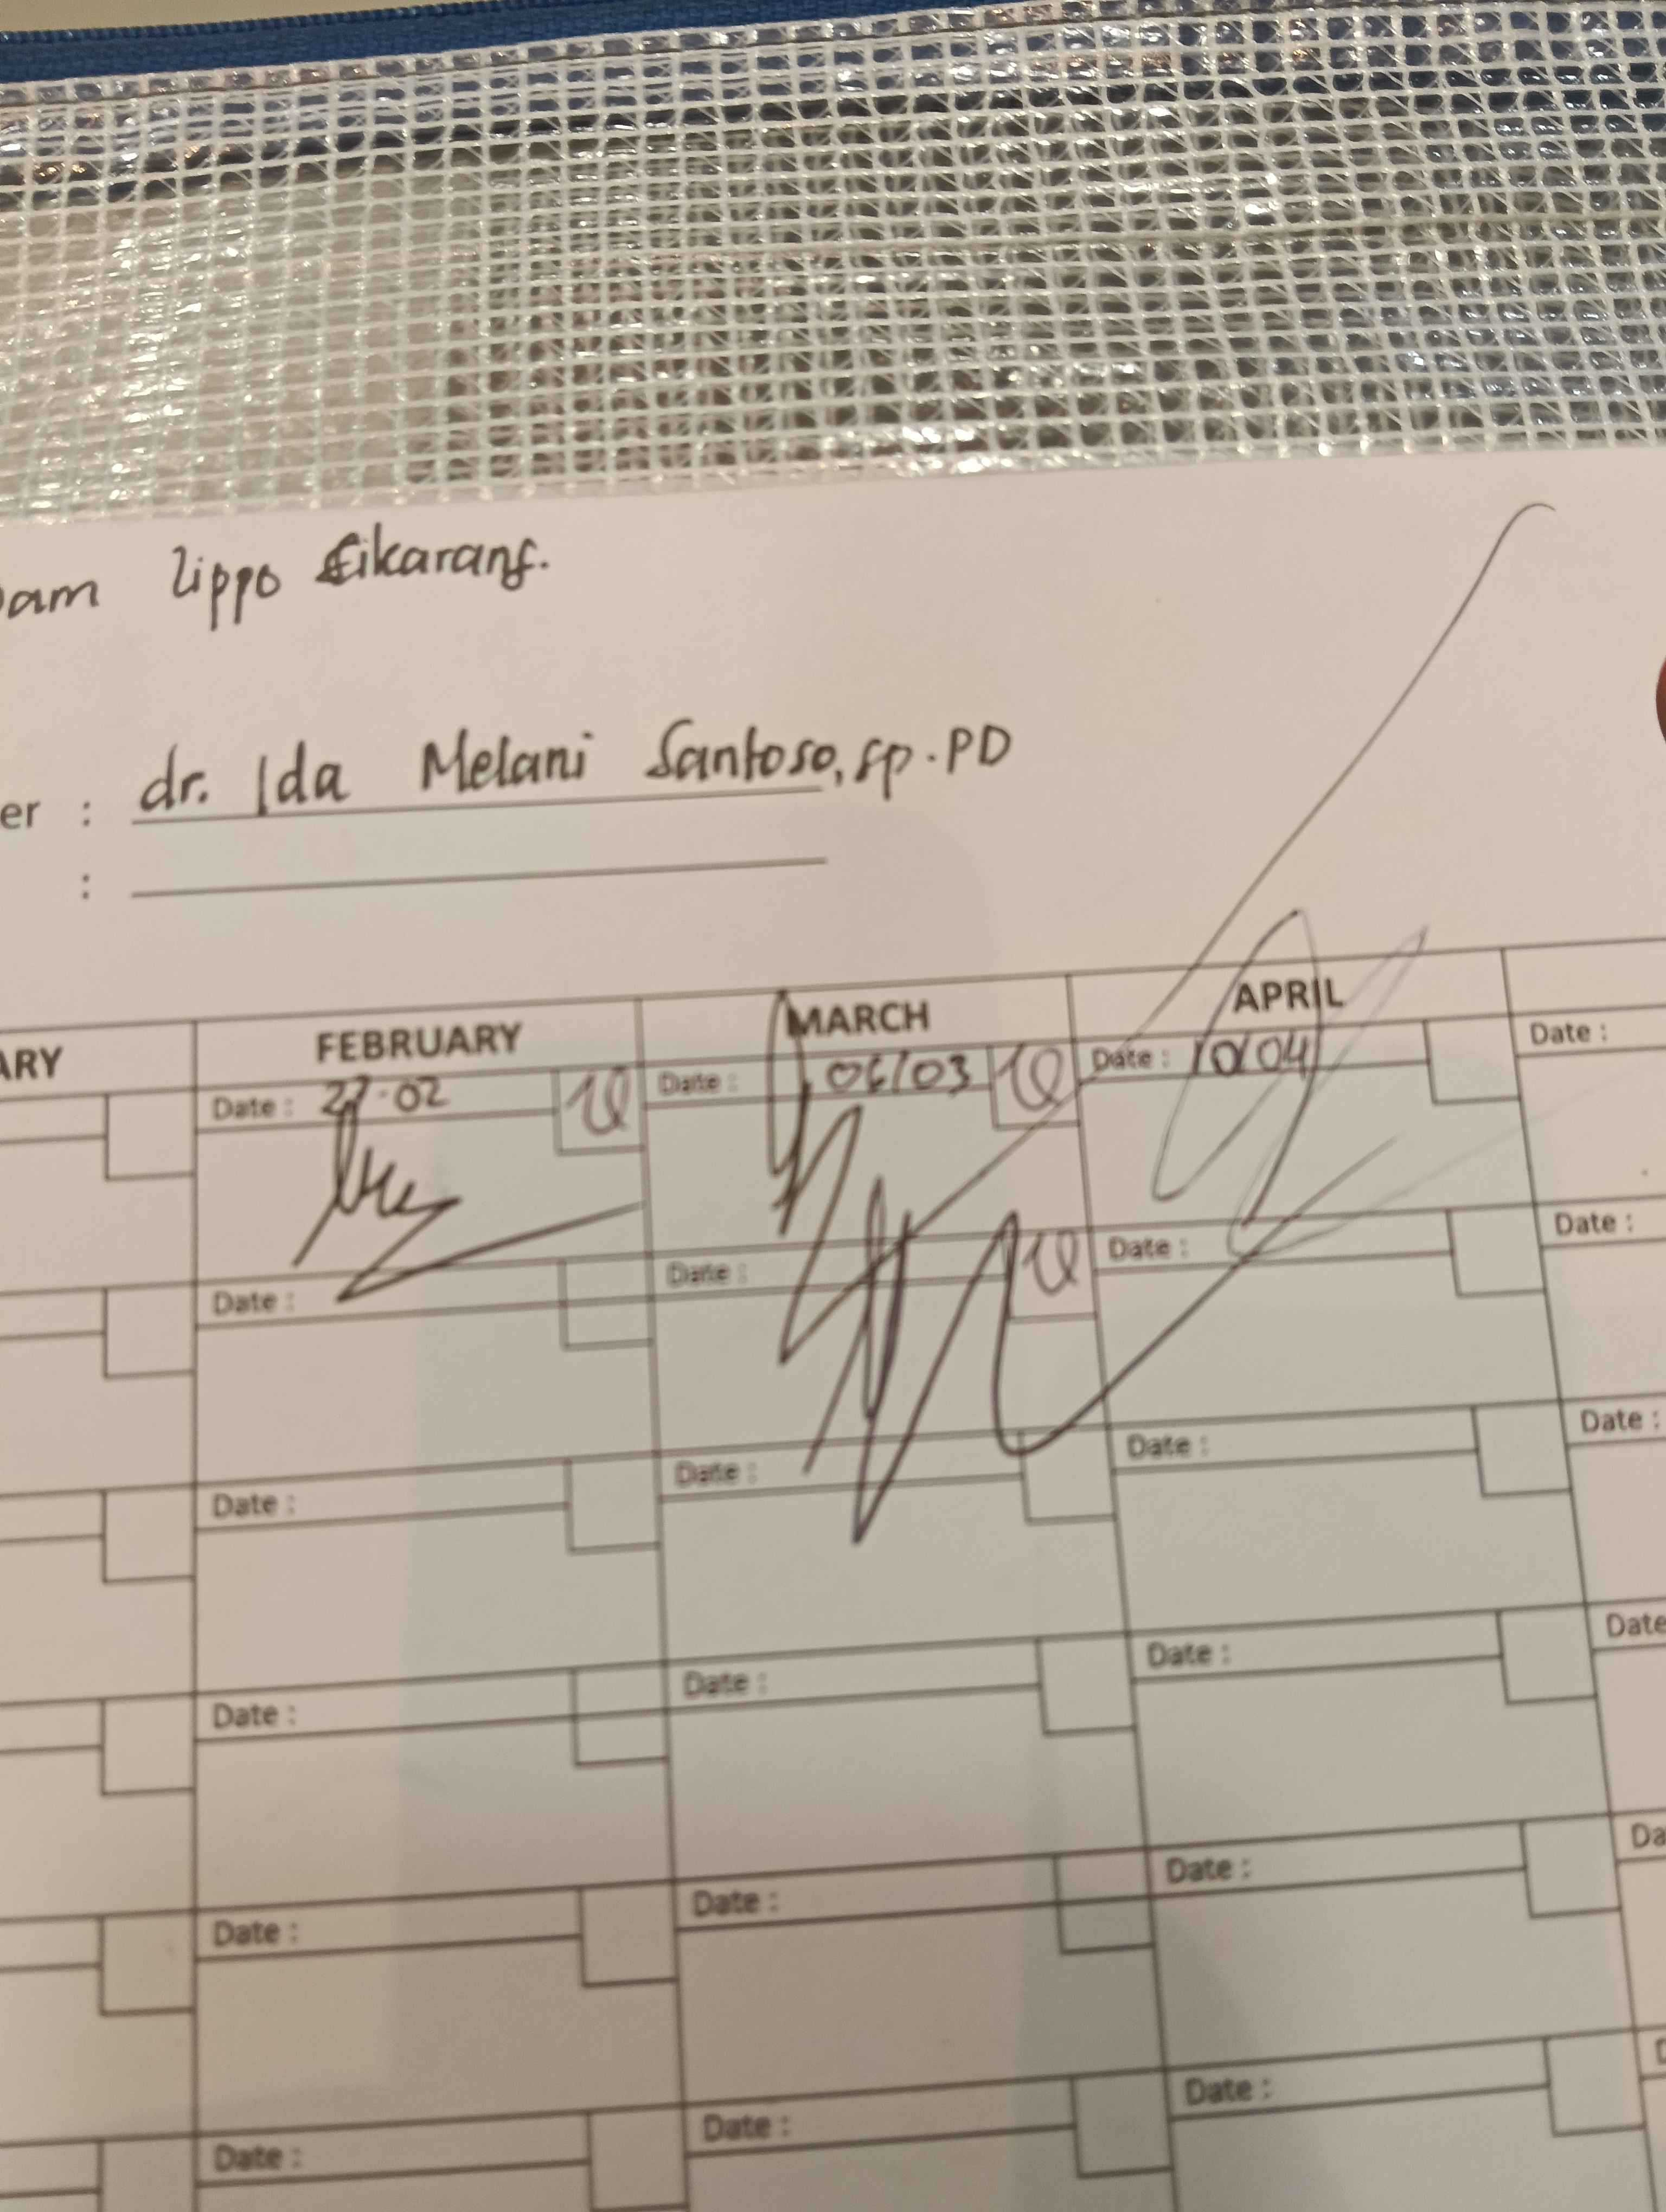 Lippo Cikarang.
er : dr. Ida Melani Santoso, sp.PD
:
ARY FEBRUARY MARCH APRIL
Date : 27-02 Date : 06/03 Date : 10/04 Date :
Date : Date : Date : Date :
Date : Date : Date : Date :
Date : Date : Date : Date
Date : Date : Date : Da
Date : Date : Date :